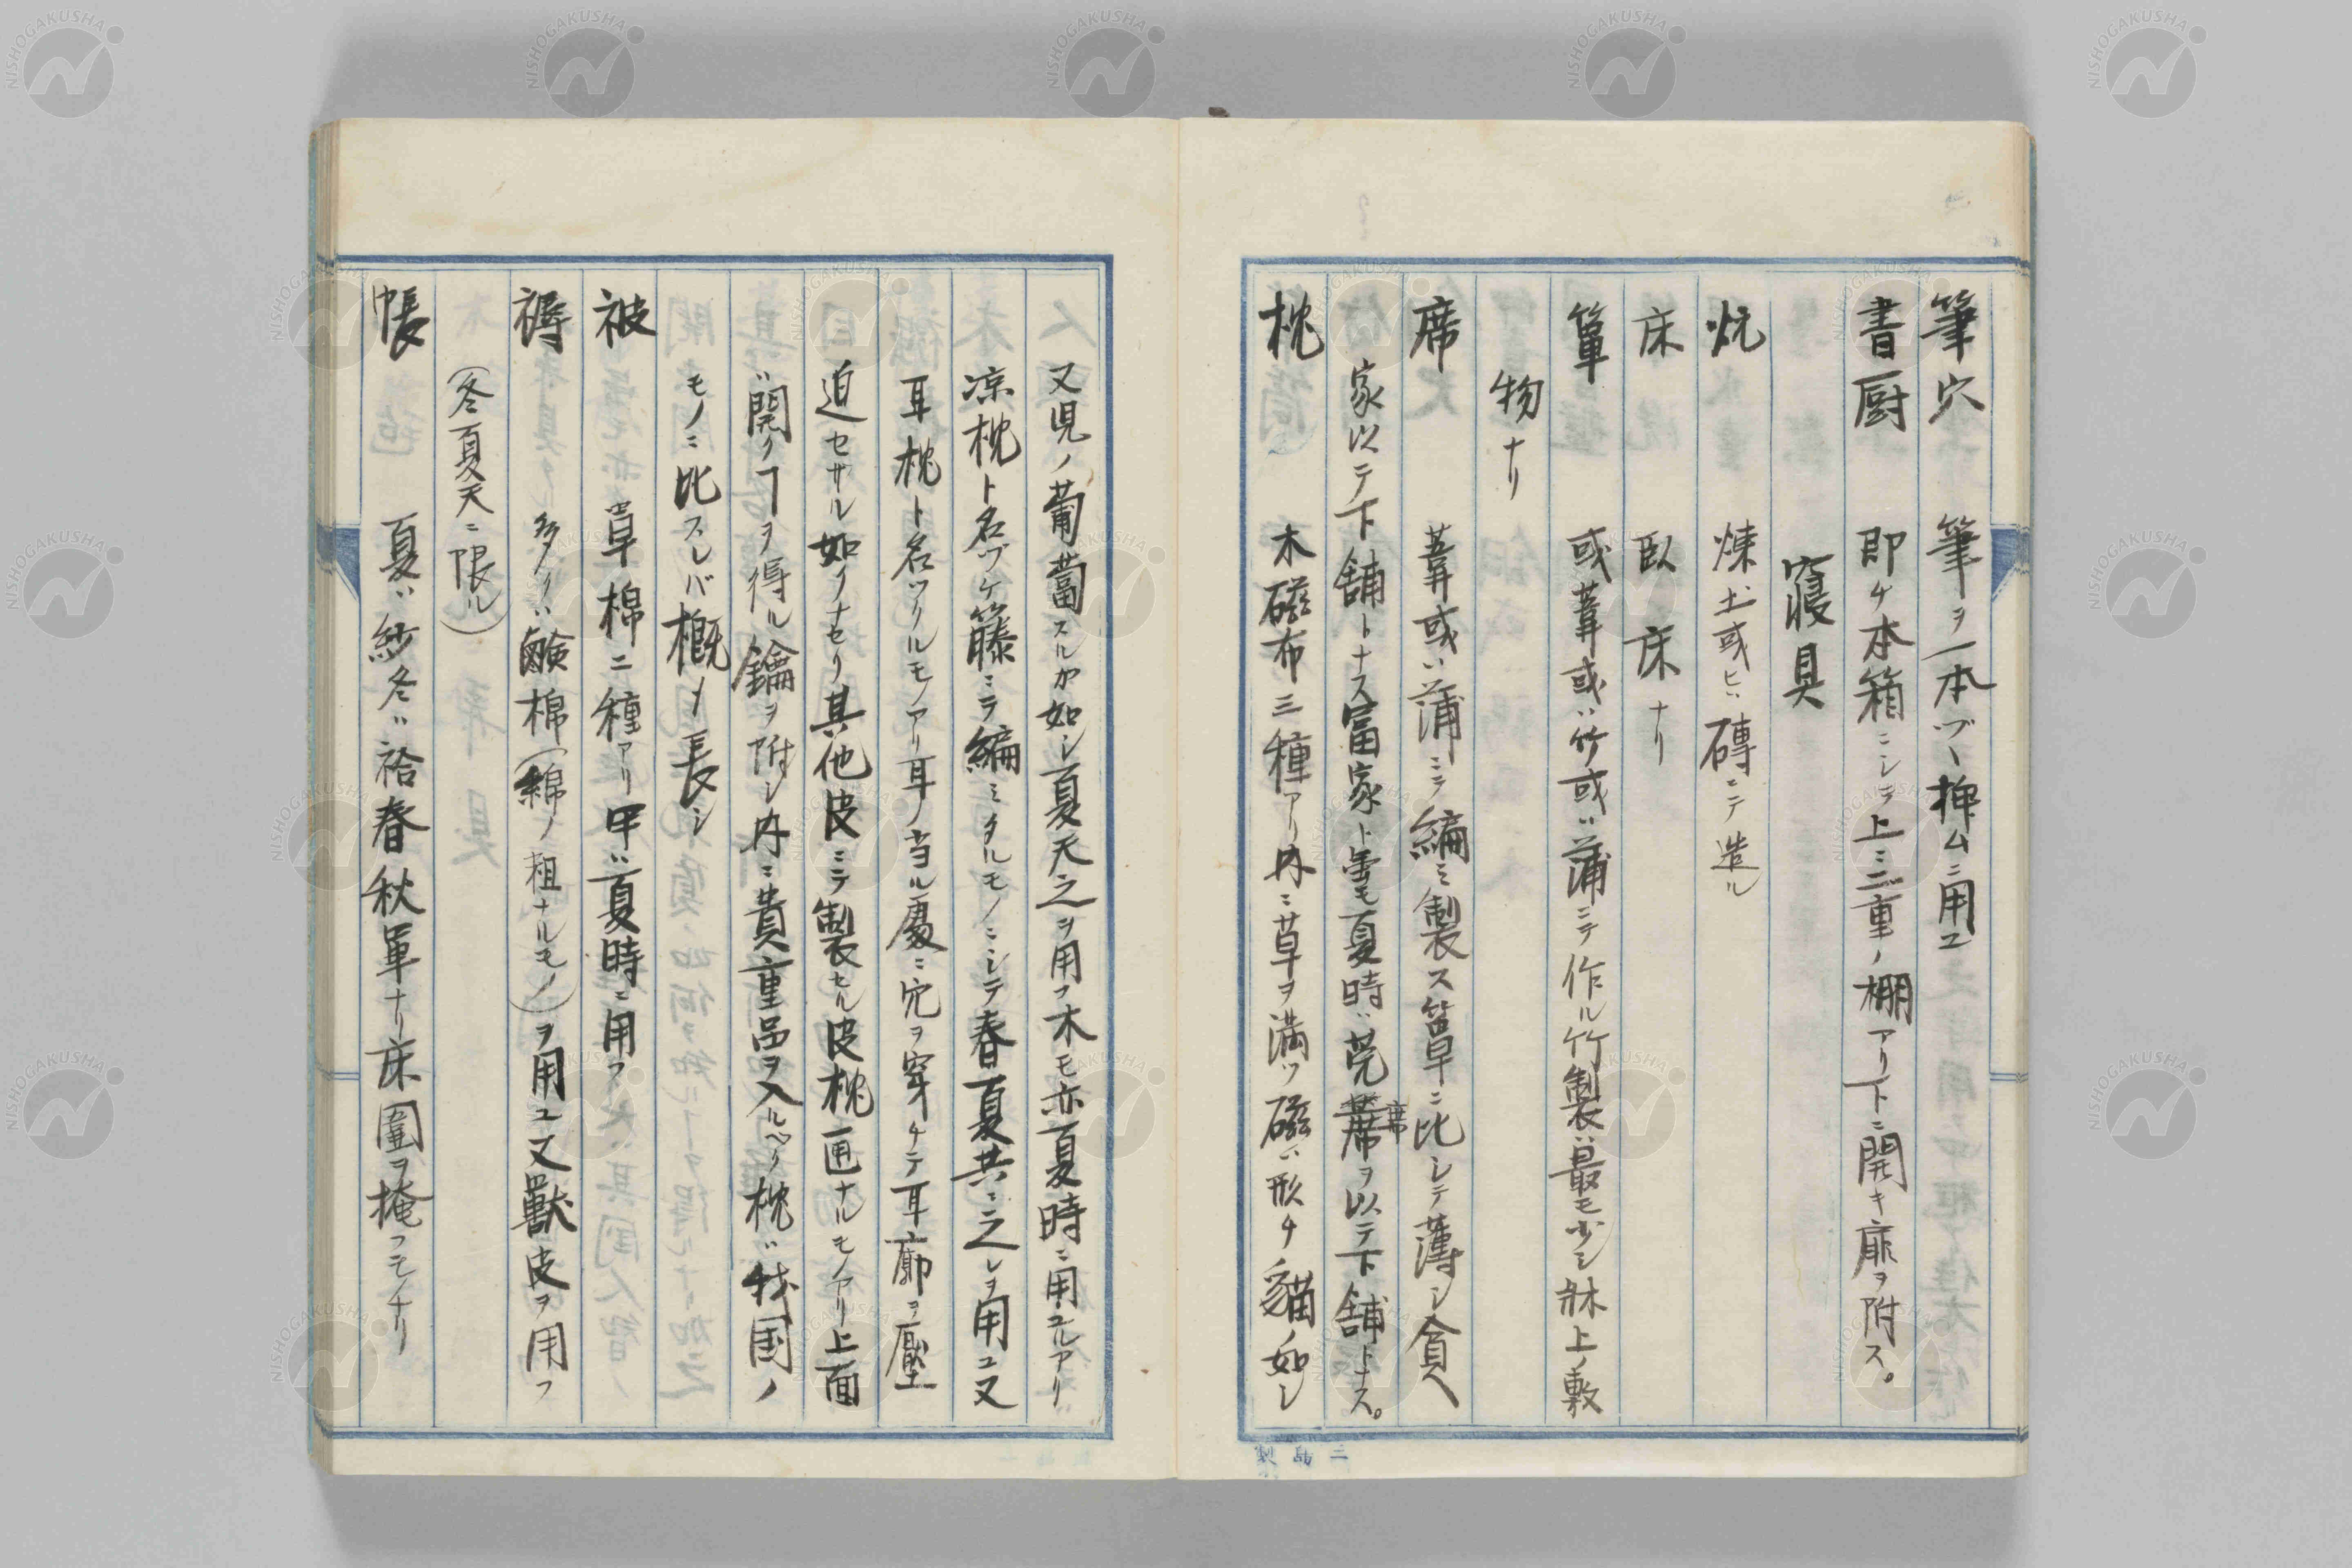 筆穴　筆ヲ一本ヅヽ挿ムニ用ユ
書厨　即チ本箱ニシテ上ニ二重ノ棚アリ下ニ開キ扉ヲ附ス。
寝具
炕　煉土或ヒハ磚ニテ造ル
床　臥床ナリ
簟　或葦或ハ竹或ハ蒲ニテ作ル竹製ハ最モ少シ牀上ノ敷
物ナリ
席　葦或ハ蒲ニテ編ミ製ス簟ニ比シテ薄シ貧
家以テ下舗トナス富家ト雖モ夏時ハ莞蓆席ヲ以テ下舗トナス。
枕　木磁布三種アリ内ニ草ヲ満ツ磁ハ形チ猫ノ如シ
又児ノ葡蔔スルガ如シ夏天之ヲ用フ木モ亦夏時ニ用ユルアリ
凉枕ト名ヅケ籐ニテ編ミタルモノニシテ春夏共ニ之レヲ用ユ又
耳枕ト名ヅクルモノアリ耳ノ当ル處ニ穴ヲ穿チテ耳廓ヲ壓
迫セサル如クナセリ其他皮ニテ製セル皮枕匣ナルモノアリ上面
ハ開クヿヲ得ル鑰ヲ附シ内ニ貴重品ヲ入ルベク枕ハ我国ノ
モノニ比スレバ概メ長シ
被　草棉二種アリ甲ハ夏時ニ用フ
褥　多クハ鹸棉（綿ノ粗ナルモノ）ヲ用ユ又獣皮ヲ用フ
（冬夏天ニ限ル）
帳　夏ハ紗冬ハ袷春秋單ナリ床圍ヲ掩フモノナリ